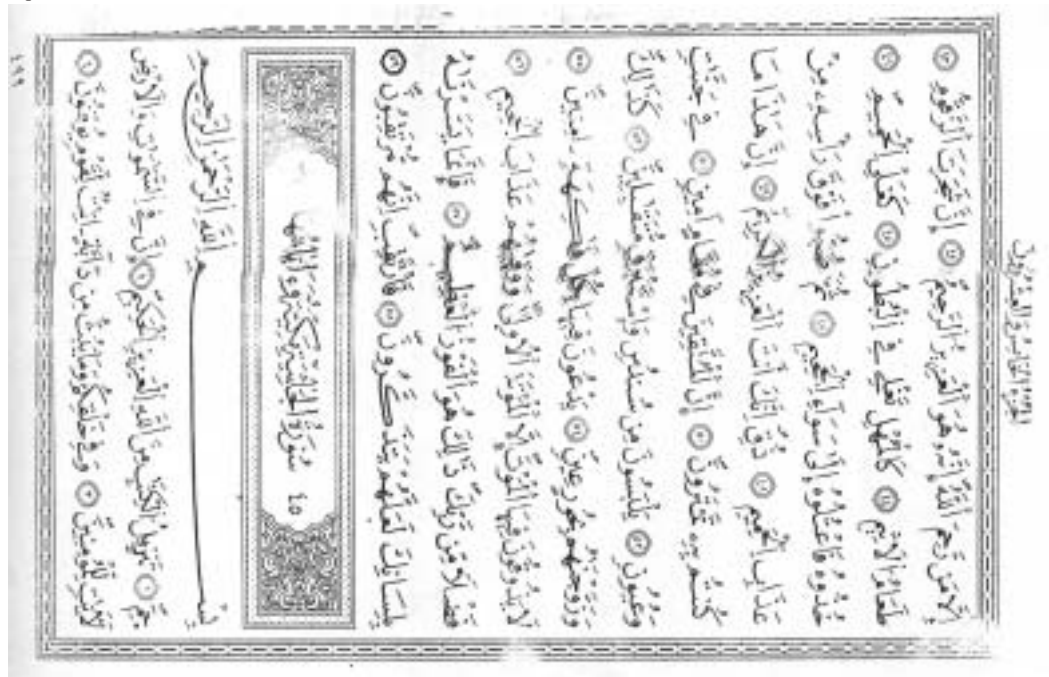 الجزء الخامس والعشرون
إِلَّا مَن رَّحِمَ ٱللَّهُ إِنَّهُۥ هُوَ ٱلْعَزِيزُ ٱلرَّحِيمُ ٤٢ إِنَّ شَجَرَتَ ٱلزَّقُّومِ ٤٣
طَعَامُ ٱلْأَثِيمِ ٤٤ كَٱلْمُهْلِ تَغْلِى فِى ٱلْبُطُونِ ٤٥ كَغَلْىِ ٱلْحَمِيمِ ٤٦
خُذُوهُ فَٱعْتِلُوهُ إِلَىٰ سَوَآءِ ٱلْجَحِيمِ ٤٧ ثُمَّ صُبُّوا۟ فَوْقَ رَأْسِهِۦ مِنْ
عَذَابِ ٱلْحَمِيمِ ٤٨ ذُقْ إِنَّكَ أَنتَ ٱلْعَزِيزُ ٱلْكَرِيمُ ٤٩ إِنَّ هَٰذَا مَا
كُنتُم بِهِۦ تَمْتَرُونَ ٥٠ إِنَّ ٱلْمُتَّقِينَ فِى مَقَامٍ أَمِينٍ ٥١ فِى جَنَّٰتٍ
وَعُيُونٍ ٥٢ يَلْبَسُونَ مِن سُندُسٍ وَإِسْتَبْرَقٍ مُّتَقَٰبِلِينَ ٥٣ كَذَٰلِكَ
وَزَوَّجْنَٰهُم بِحُورٍ عِينٍ ٥٤ يَدْعُونَ فِيهَا بِكُلِّ فَٰكِهَةٍ ءَامِنِينَ ٥٥
لَا يَذُوقُونَ فِيهَا ٱلْمَوْتَ إِلَّا ٱلْمَوْتَةَ ٱلْأُولَىٰ وَوَقَىٰهُمْ عَذَابَ ٱلْجَحِيمِ ٥٦
فَضْلًا مِّن رَّبِّكَ ذَٰلِكَ هُوَ ٱلْفَوْزُ ٱلْعَظِيمُ ٥٧ فَإِنَّمَا يَسَّرْنَٰهُ
بِلِسَانِكَ لَعَلَّهُمْ يَتَذَكَّرُونَ ٥٨ فَٱرْتَقِبْ إِنَّهُم مُّرْتَقِبُونَ ٥٩
٤٥ سُورَةُ الجَاثِيَةِ مَكِّيَّةٌ وَآيَاتُهَا
بِسْمِ ٱللَّهِ ٱلرَّحْمَٰنِ ٱلرَّحِيمِ
حمٓ ١ تَنزِيلُ ٱلْكِتَٰبِ مِنَ ٱللَّهِ ٱلْعَزِيزِ ٱلْحَكِيمِ ٢ إِنَّ فِى ٱلسَّمَٰوَٰتِ وَٱلْأَرْضِ
لَءَايَٰتٍ لِّلْمُؤْمِنِينَ ٣ وَفِى خَلْقِكُمْ وَمَا يَبُثُّ مِن دَآبَّةٍ ءَايَٰتٌ لِّقَوْمٍ يُوقِنُونَ ٤
٤٩٩